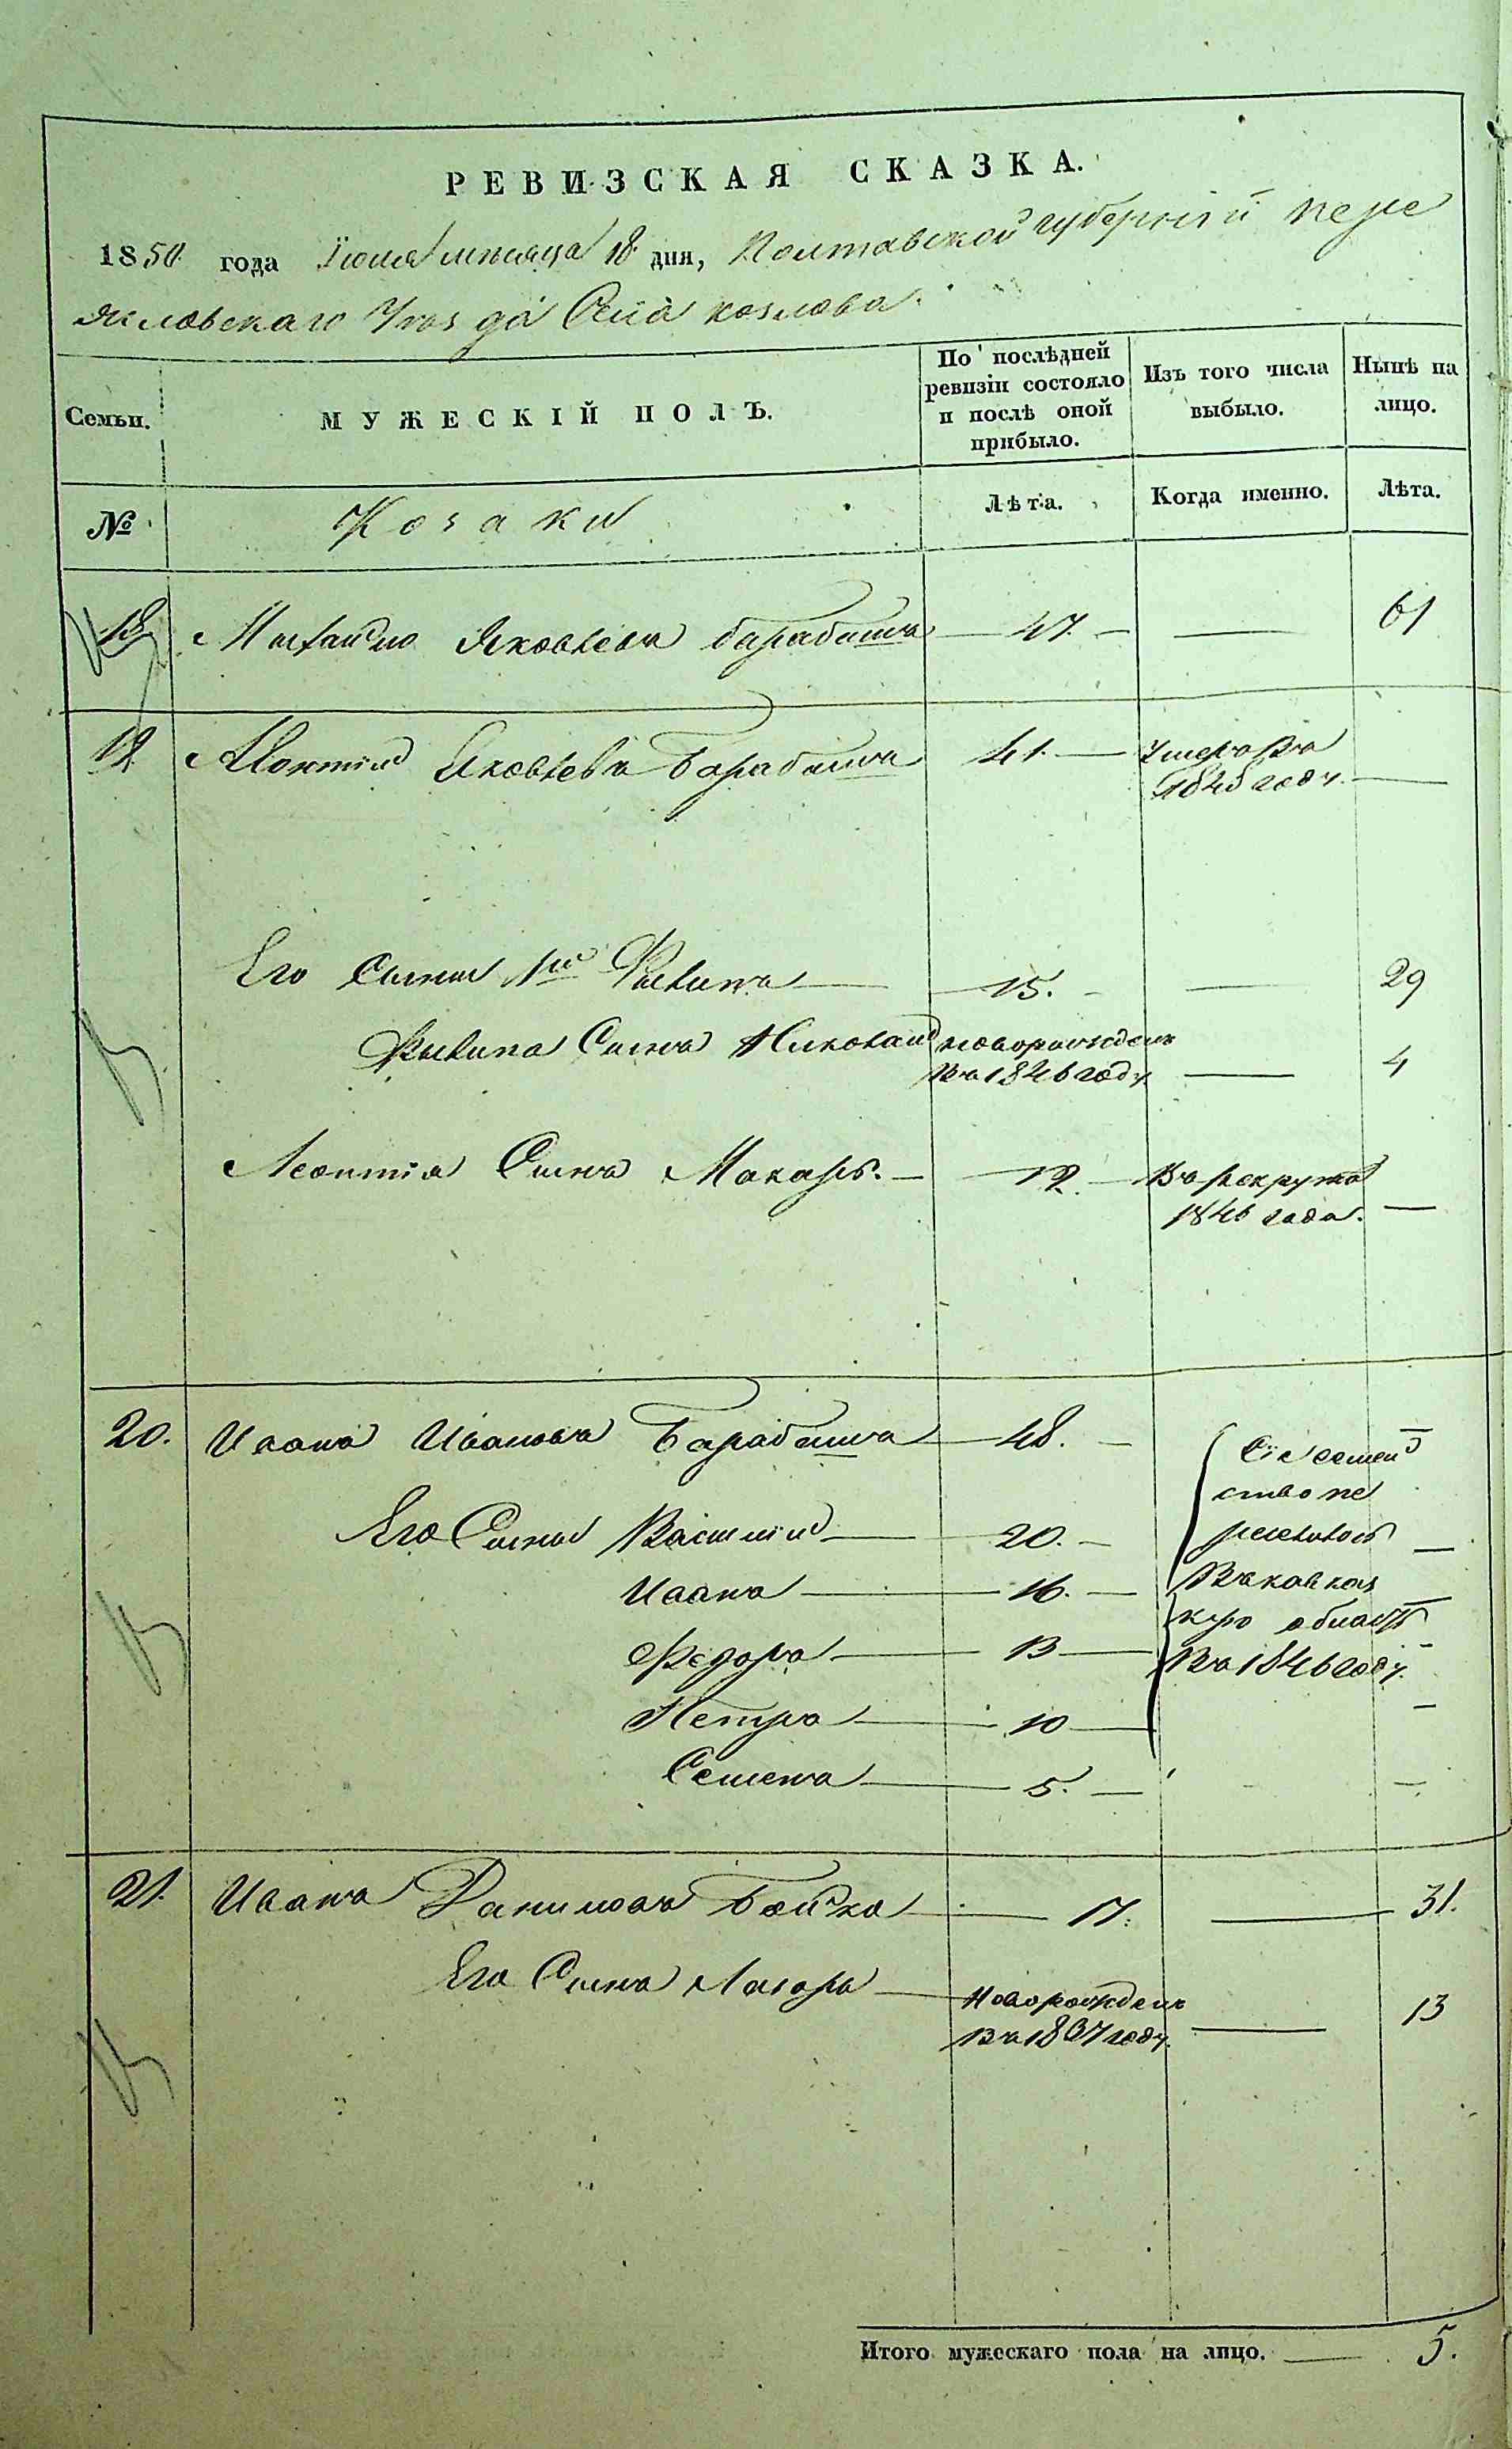 РЕВИЗСКАЯ СКАЗКА.
1850 года Іюля мѣсяца 18 дня, Полтавской губерніи пере
яславскаго Уѣзда Села козлова.
Семьи.
МУЖЕСКІЙ ПОЛЪ.
По послѣдней ревизіи состояло и послѣ оной прибыло.
Изъ того числа выбыло.
Нынѣ на лицо.
№
Козаки
Лѣта.
Когда именно.
Лѣта.
18 Михайло Яковлевъ барабашъ — 47. — — 61
19 Леонтій Яковлевъ Барабашъ 41. — Умеръ въ
1848 году. —
Его Сынъ 1й Филипъ — 15. — — 29
Филипа Сынъ Николай новорожденъ
въ 1846 году — 4
Леонтія Сынъ Макаръ. — 12. — Въ рекрута
1846 года. —
20. Иванъ Ивановъ Барабашъ — 48. — Сіе семей
ство пе
Его Сыны Василій — 20. — реселилось —
Иванъ — 16. — Въ кавказ
кую область —
Федоръ — 13 — Въ 1846 году. -
Петръ — 10 — —
Семенъ — 5. — —
21. Иванъ Даниловъ Бойко — 17. — 31.
Его Сынъ Лазорь — Новорожденъ
въ 1837 году. — 13
Итого мужескаго пола на лицо. — 5.